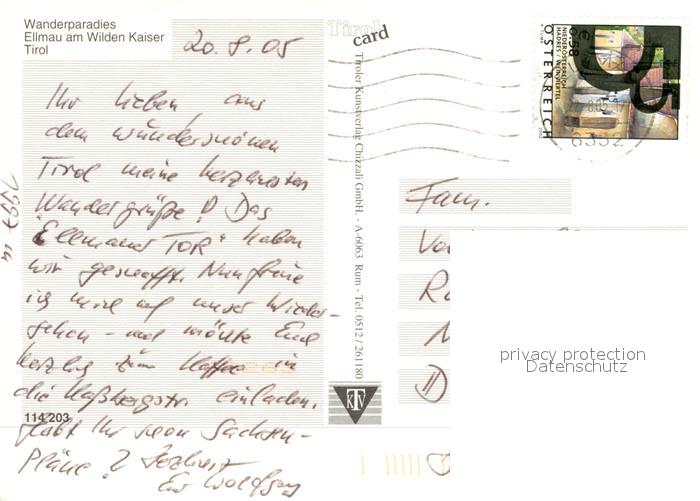 Wanderparadies
Ellmau am Wilden Kaiser
Tirol
20.8.05
Tirol
card
Ihr Lieben aus
dem wunderschönen
Tirol meine herzlichsten
Wandergrüße! Das
"Ellmauer TOR" haben
wir geschafft. Nun freue
ich mich auf unser Wieder-
sehen - und möchte Euch
herzlich zum Kaffee in
die Haßbergstr. einladen.
Habt Ihr schon Sachsen-
Pläne? Herzlichst
Eur Wolfgang
114 203
Tiroler Kunstverlag Chizzali GmbH. - A-6063 Rum - Tel. 0512 / 261180
KTV
0.58 €
NIEDERÖSTERREICH
HADRES / WEINVIERTEL
ÖSTERREICH
6352
Fam.
D
privacy protection
Datenschutz